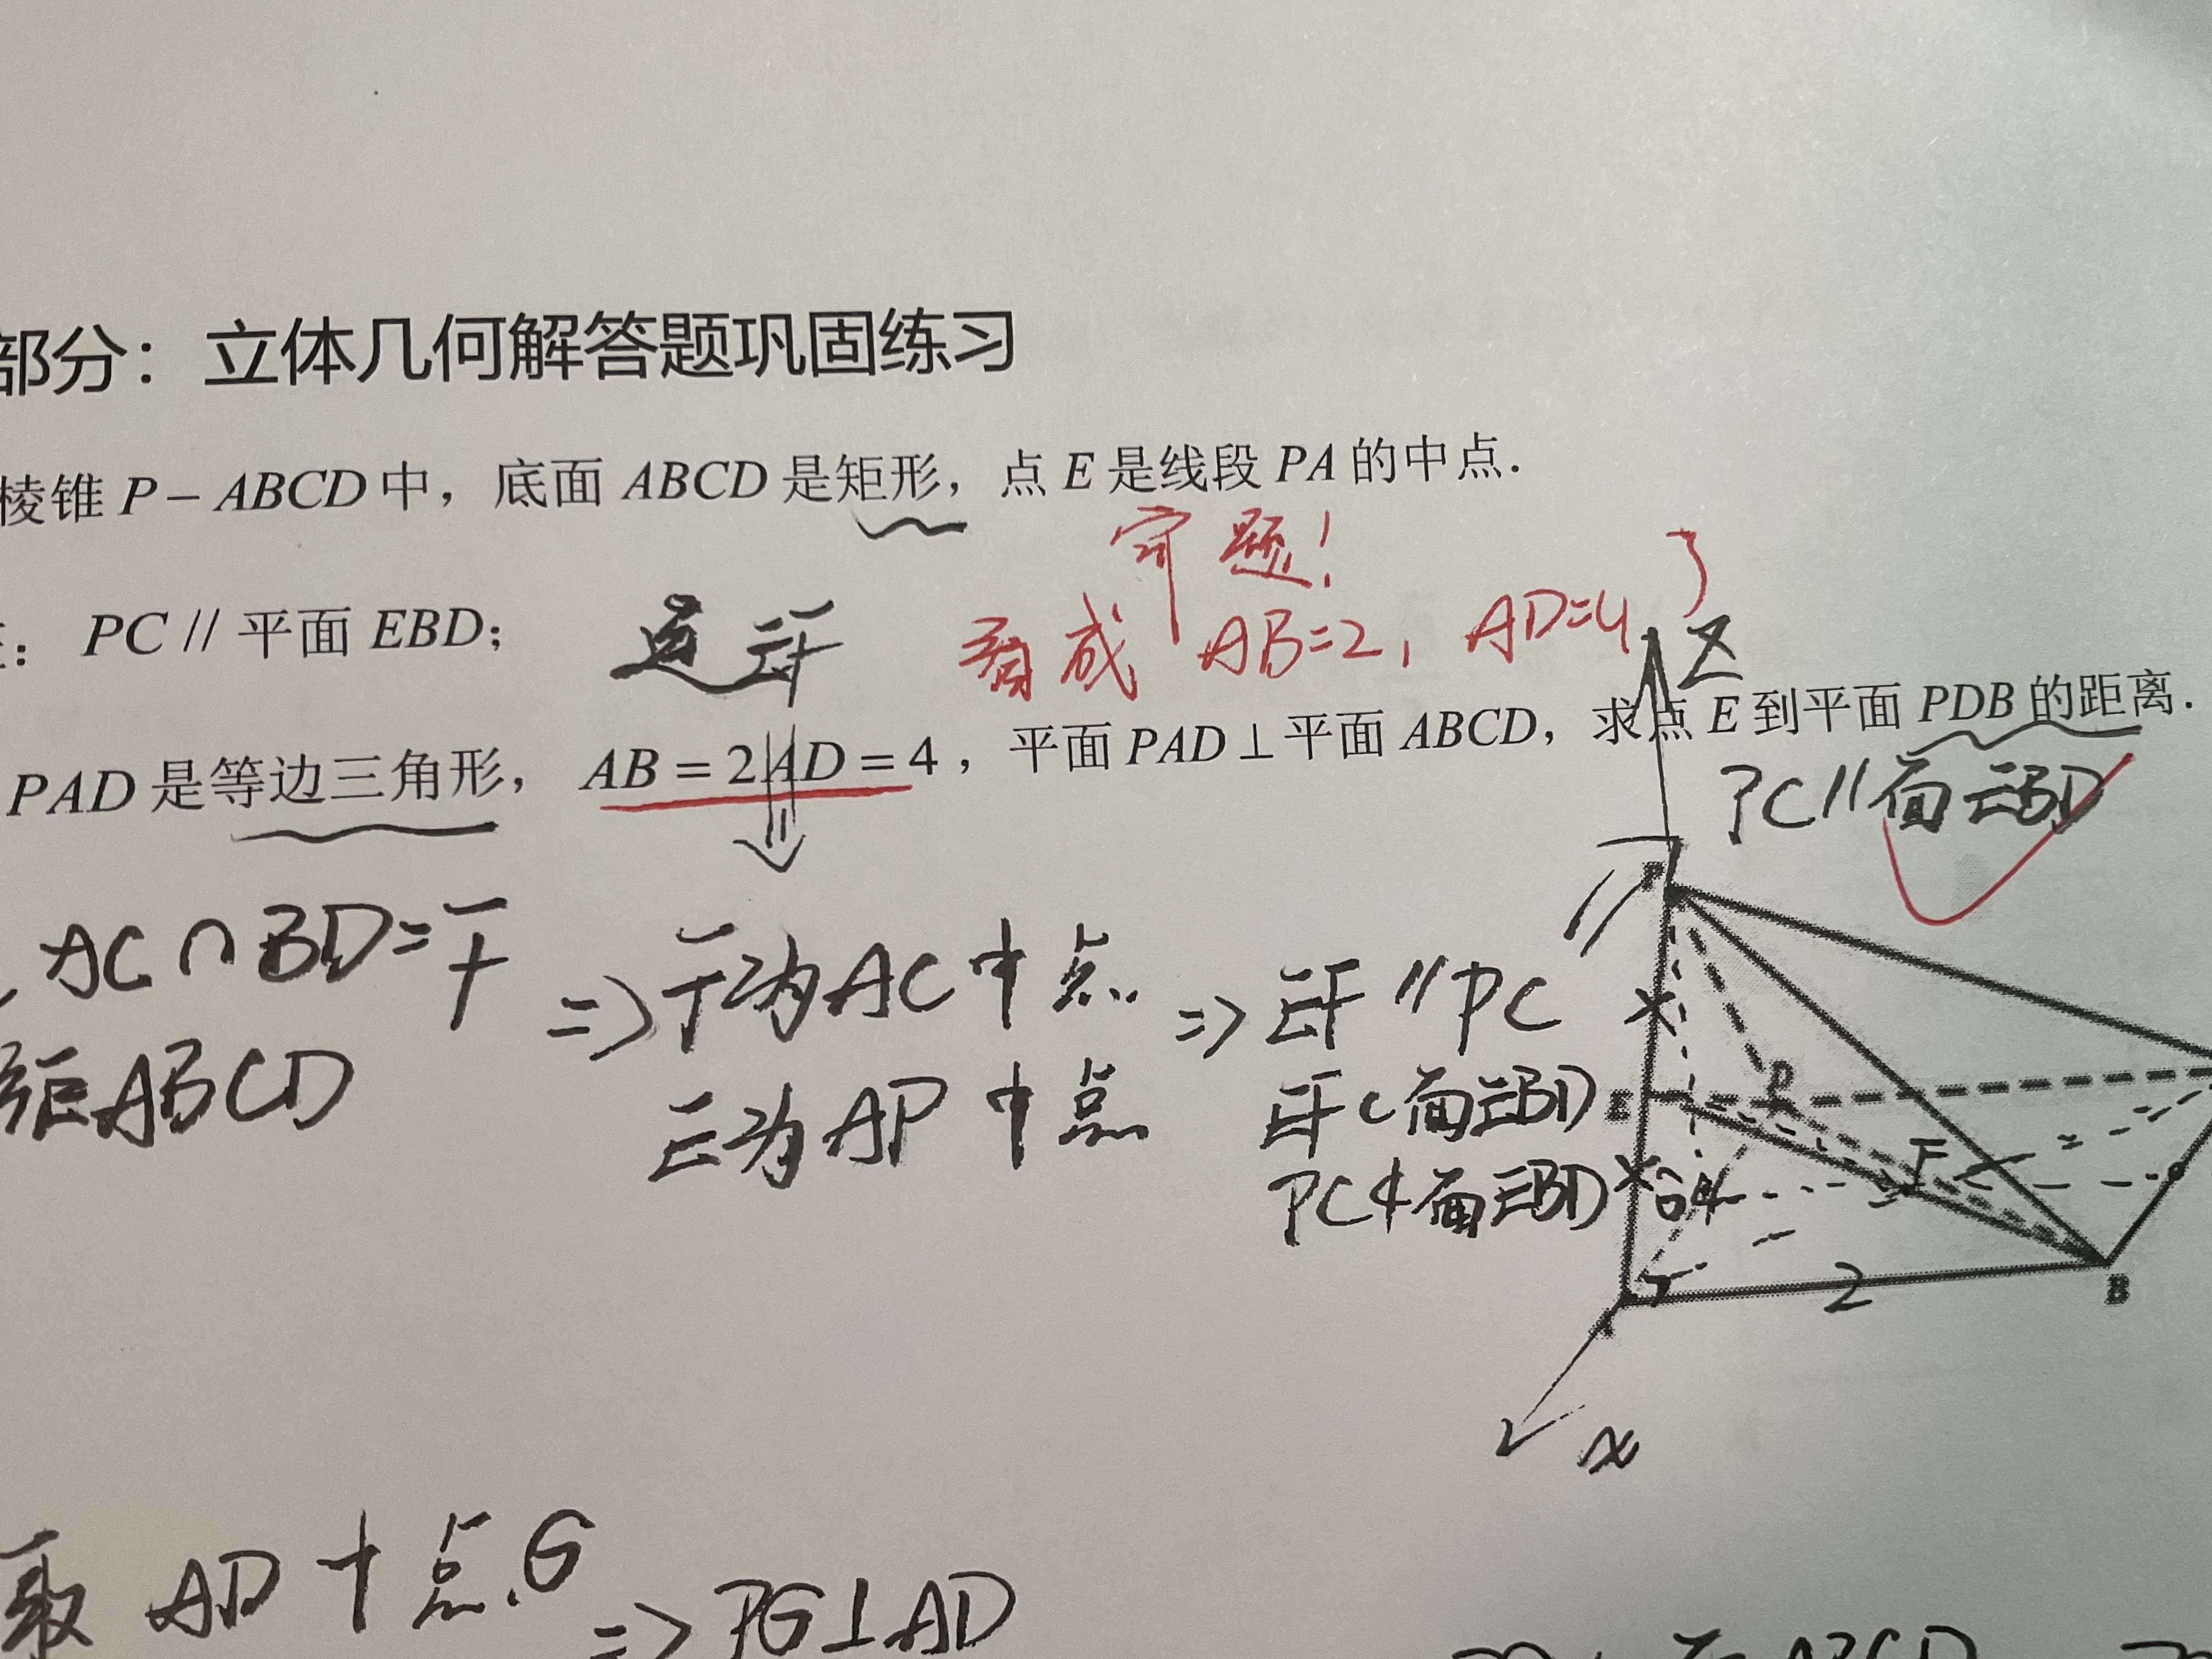 部分：立体几何解答题巩固练习
棱锥 P－ABCD 中，底面 ABCD 是矩形，点 E 是线段 PA 的中点.
审题！
：PC // 平面 EBD；
连 EF
看成 AB=2，AD=4
Z
PAD 是等边三角形，AB = 2AD = 4，平面 PAD⊥平面 ABCD，求点 E 到平面 PDB 的距离.
PC//面EBD
AC∩BD=F
⇒F为AC中点
⇒EF//PC
矩ABCD
E为AP中点
EF⊂面EBD
PC⊄面EBD
P
E
D
F
G
A
2
B
x
取 AD 中点 G
⇒PG⊥AD
面ABCD